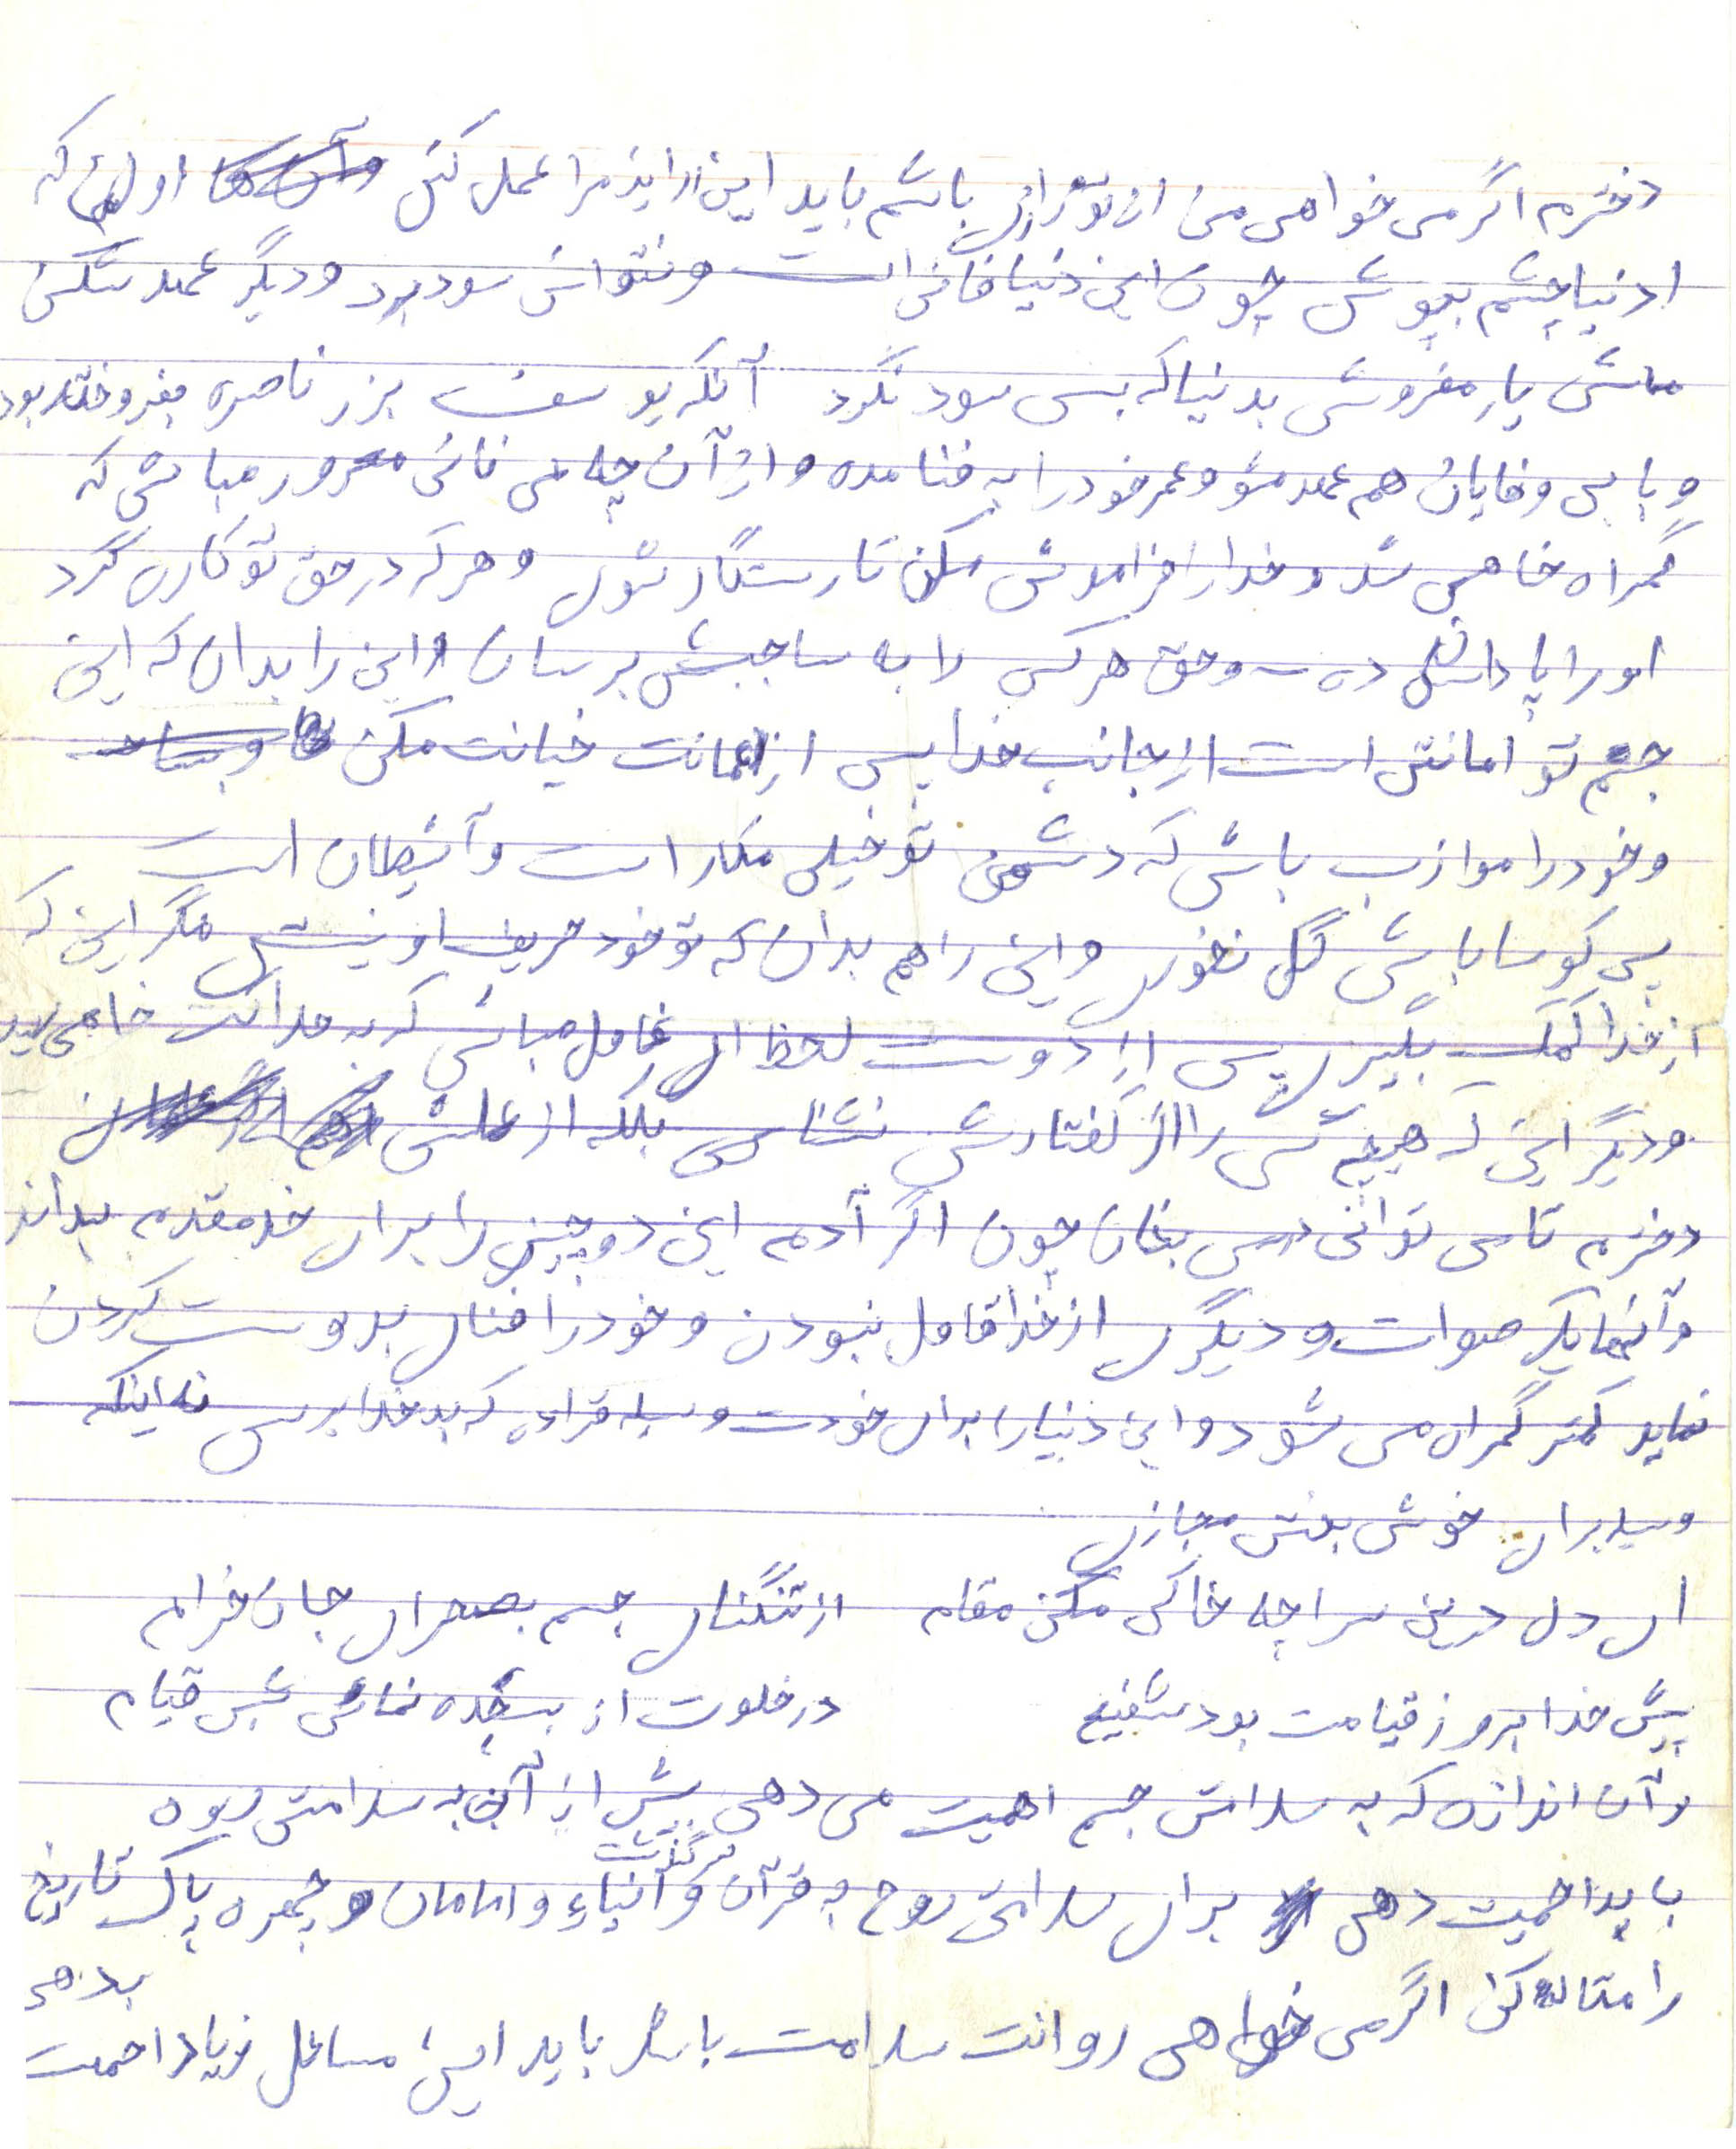 دخترم اگر می خواهی من از تو راضی باشم باید این را عمل کنی اول این که
از دنیا چشم بپوش چون این دنیا فانی است و نتوانی سود برد و دیگر عهد شکن
مباش یار مفروش بدنیا که بسی سود نکرد آنکه یوسف بزر ناصره بفروخته بود
و با بی وفایان هم عهد مشو و عمر خود را به فنا مده و از آن چه می فانی مغرور مباش که
گمراه خاهی شد و خدا را فراموش مکن تا رستگار شوی و هر که در حق تو کاری کرد
او را پاداش ده و حق هر کس را به ساحبش برسان و این را بدان که این
جسم تو امانتی است از جانب خدا پس از امانت خیانت مکن
و خود را موازب باش که دشمن تو خیلی مکار است و آن شیطان است
پس کوسا باش گل نخوری و این را هم بدان که تو خود حریف او نیستی مگر این که
از خدا کمک بگیری پس از دوست لحظه ای غافل مباش که به هدفت خاهی رسید
و دیگر این که هیچ کس را از گفتارش نشناسی بلکه از عملش
دخترم تا می توانی درس بخان چون اگر آدم این دو چیز را برای خد مقدم بداند
و آنها یکی صواد است و دیگری از خدا قافل نبودن و خود را فنای بدوست کردن
نماید کمتر گمراه می شود و این دنیا را برای خودت وسیله قرار ده که به خدا برسی نه اینکه
وسیله برای خوش بختی مجازی
ای دل درین سراچه خاکی مکن مقام از تنگنای جسم بصحرای جان خرام
پیش خدا بروز قیامت بود شفیع در خلوت از بسجده نمائی شبی قیام
و آن اندازه که به سلامتی جسم اهمیت می دهی بیش از آن به سلامتی روح
باید احمیت دهی برای سلامتی روح به قرآن و سرگذشت انبیاء و امامان و چهره پاک تاریخ
را متاله کن اگر می خواهی روانت سلامت باشد باید این مسائل زیاد احمیت
بدهی